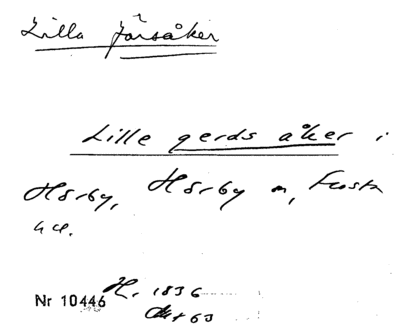 Lilla Jörsåker
Lille gerds åker i
Hörby, Hörby sn, Frosta
hd.
Nr 10446 H. 1836
Akt 63